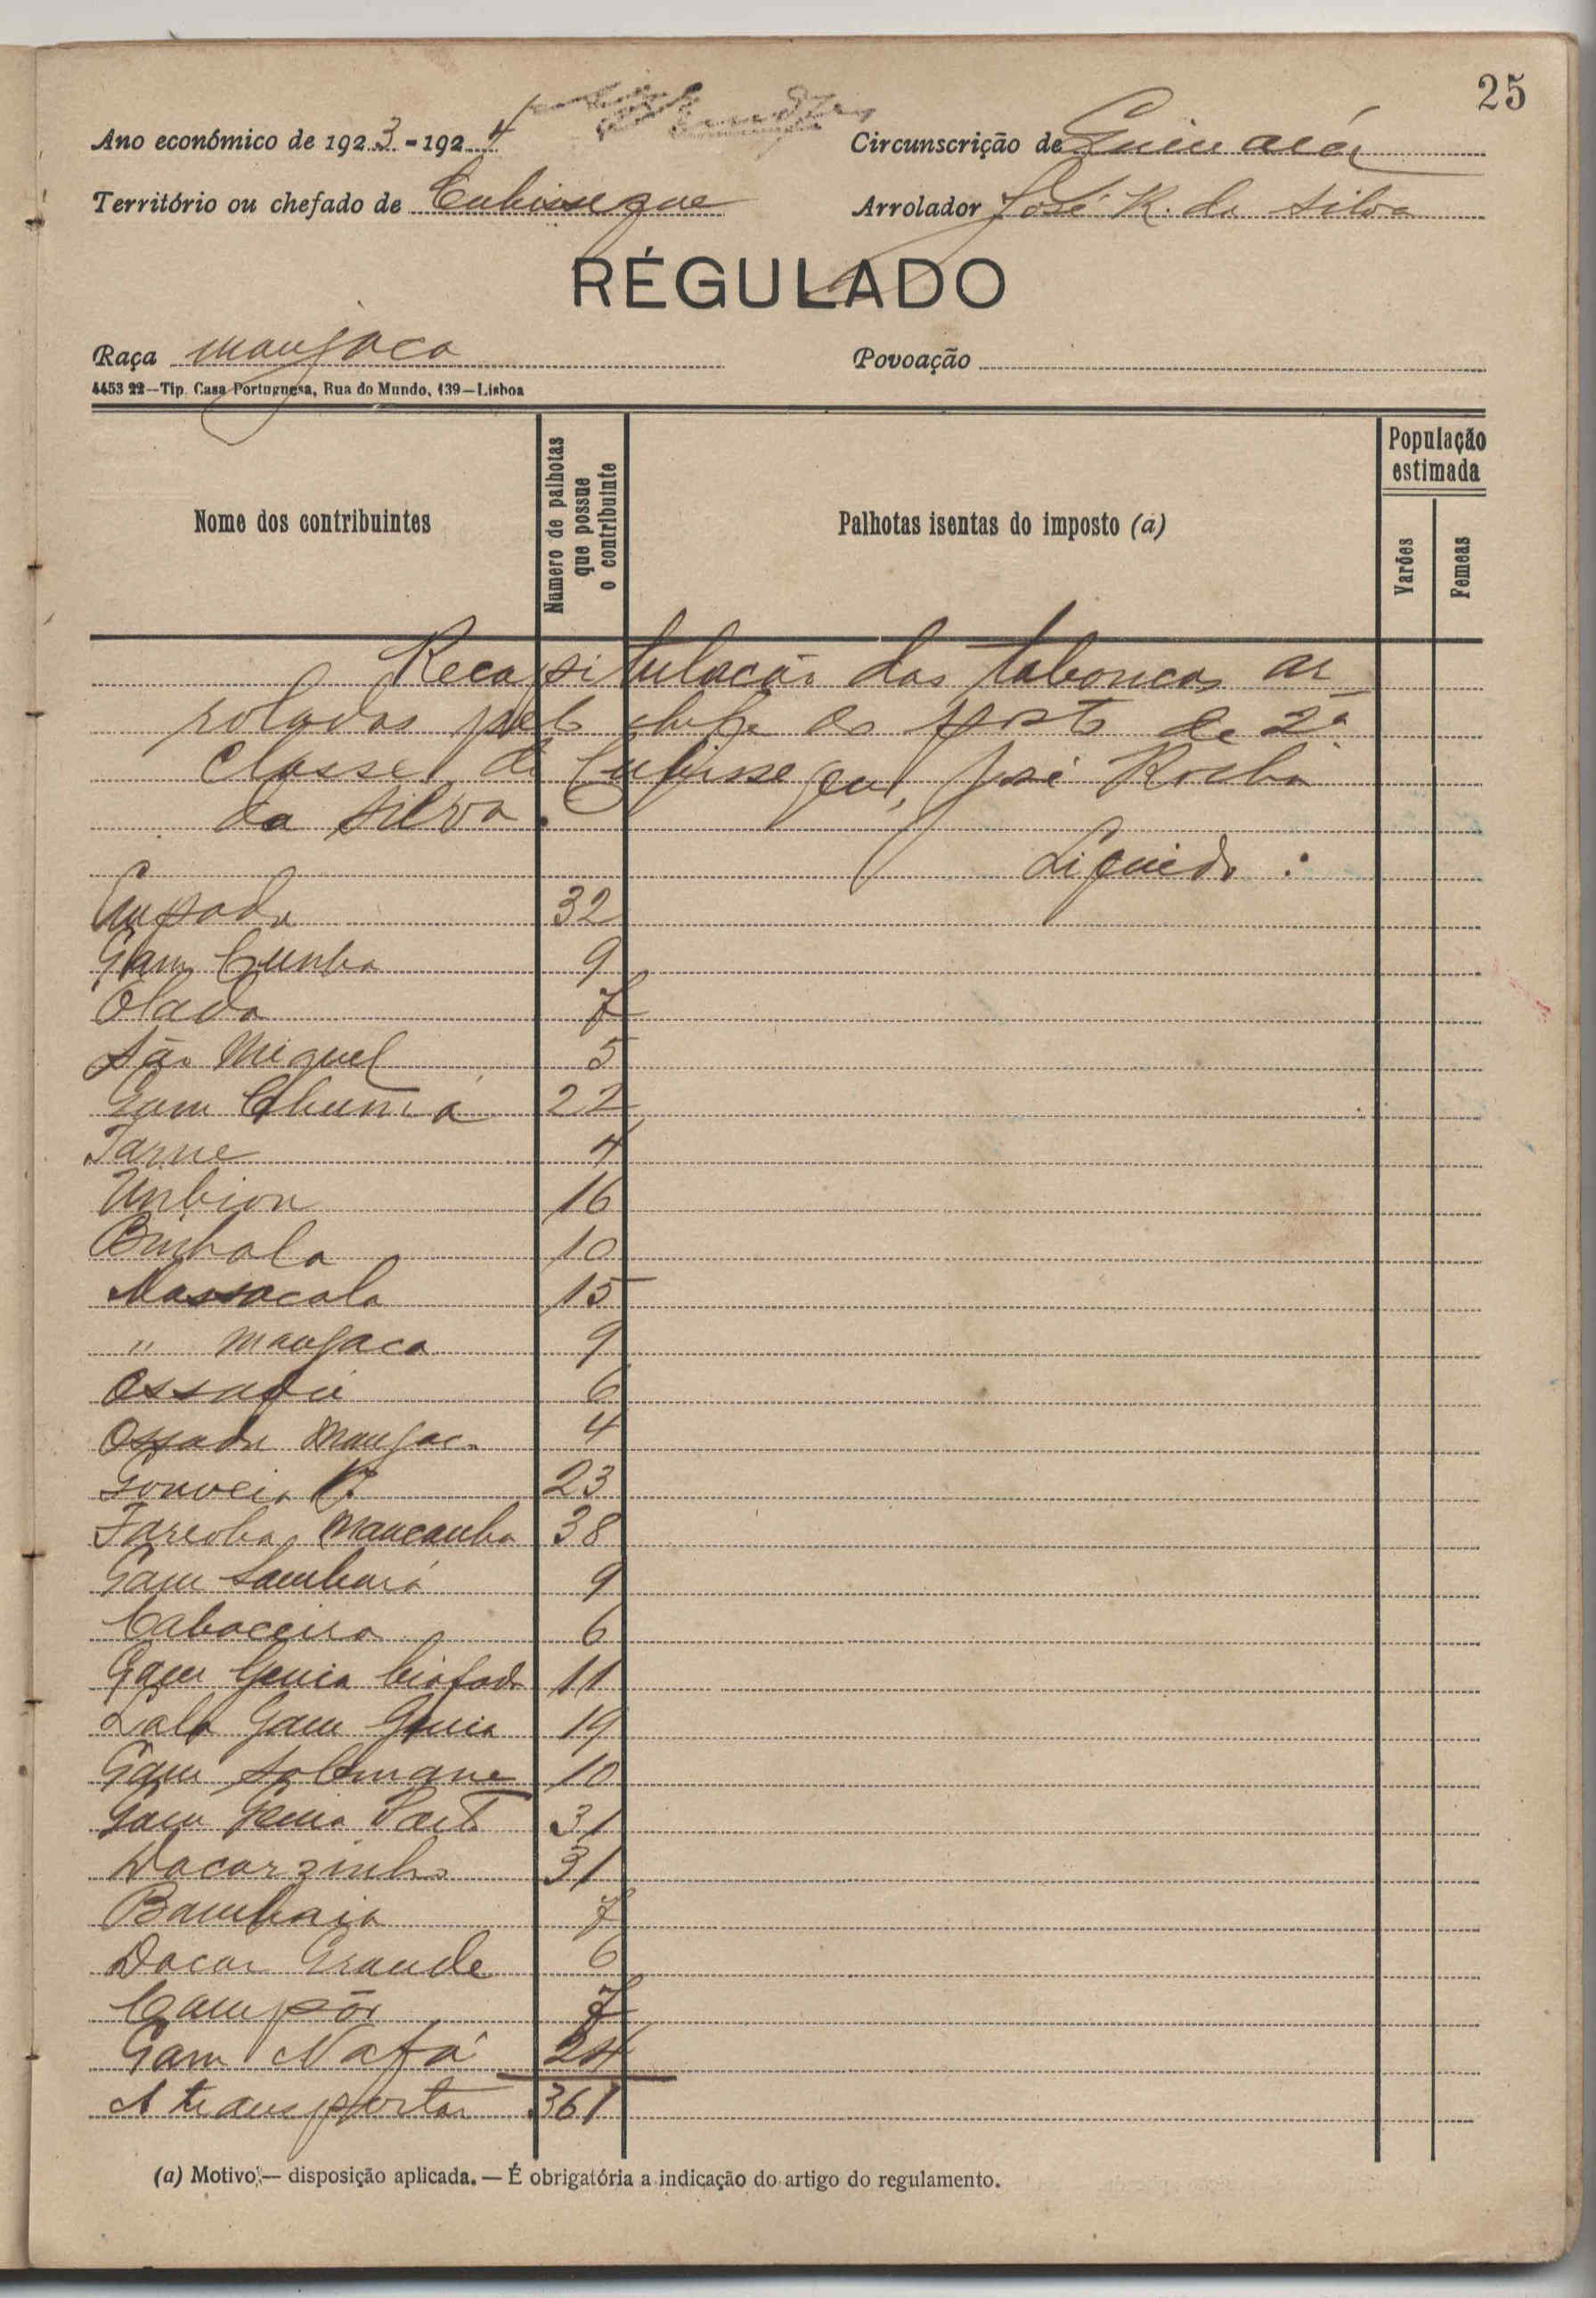 25
Ano económico de 1923-1924
Circunscrição de
Território ou chefado de Cubisseque
Arrolador José R. da Silva
RÉGULADO
Raça manjaca
Povoação
4453 22—Tip. Casa Portuguesa, Rua do Mundo, 139—Lisboa
Nome dos contribuintes
Numero de palhotas que possue o contribuinte
Palhotas isentas do imposto (a)
População estimada
Varões
Femeas
Recapitulação das tabancas ar
roladas pelo chefe do posto de 2ª
classe de Cubisseque, José Rocha
da Silva.
Liquido :
Empada 32
Gam Cunha 9
Olada 7
São Miguel 5
Gam Chumá 22
Tarne 4
Unbion 16
Buhala 10
Massacala 15
" manjaca 9
6
Ossada Manjaca 4
Gouveia 23
Farcoba Mancanha 38
Gam Sambará 9
Cabaceira 6
Gam Genia biafada 11
Lala Gam Genia 19
Gam Solemane 10
Gam Genia Porto 31
Dacarzinho 31
Bambaia 7
Dacar Grande 6
Campôr 7
Gam Nafá 24
A transportar 361
(a) Motivo — disposição aplicada. — É obrigatória a indicação do artigo do regulamento.